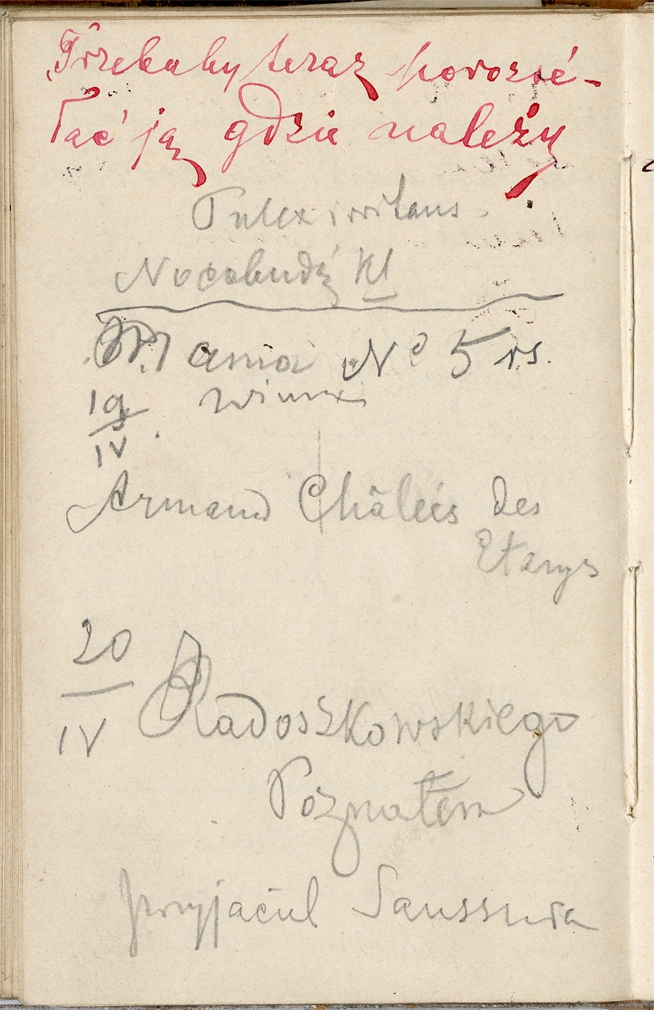 Trzebaby teraz porozsé-
łać ją gdzie należy
Pulex irritans.
Nocobudź Kl
Mania № 5 rs.
19
IV.
Armand des
20
IV
Radoszkowskiego
Poznałem
przyjaciel Saussura